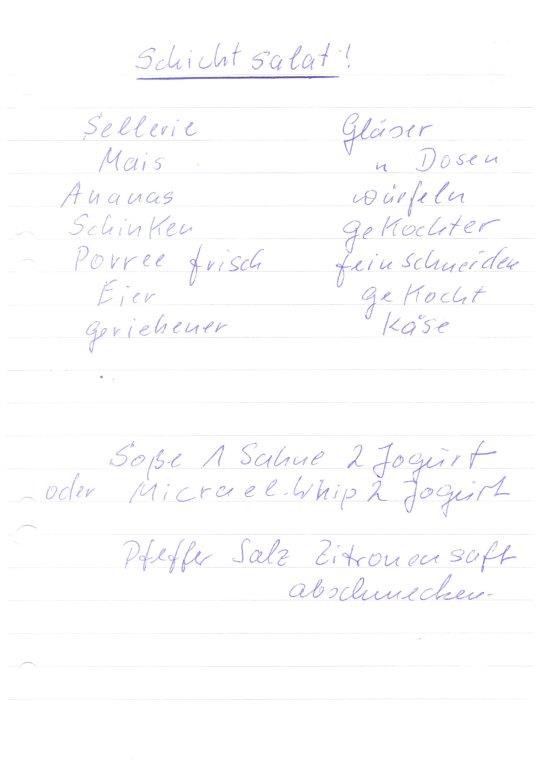 Schichtsalat!
Sellerie Gläser
Mais " Dosen
Ananas würfeln
Schinken gekochter
Porree frisch feinschneiden
Eier gekocht
geriebener Käse
Soße 1 Sahne 2 Jogurt
oder Micrael-Whip 2 Jogurt
Pfeffer Salz Zitronensaft
abschmecken.